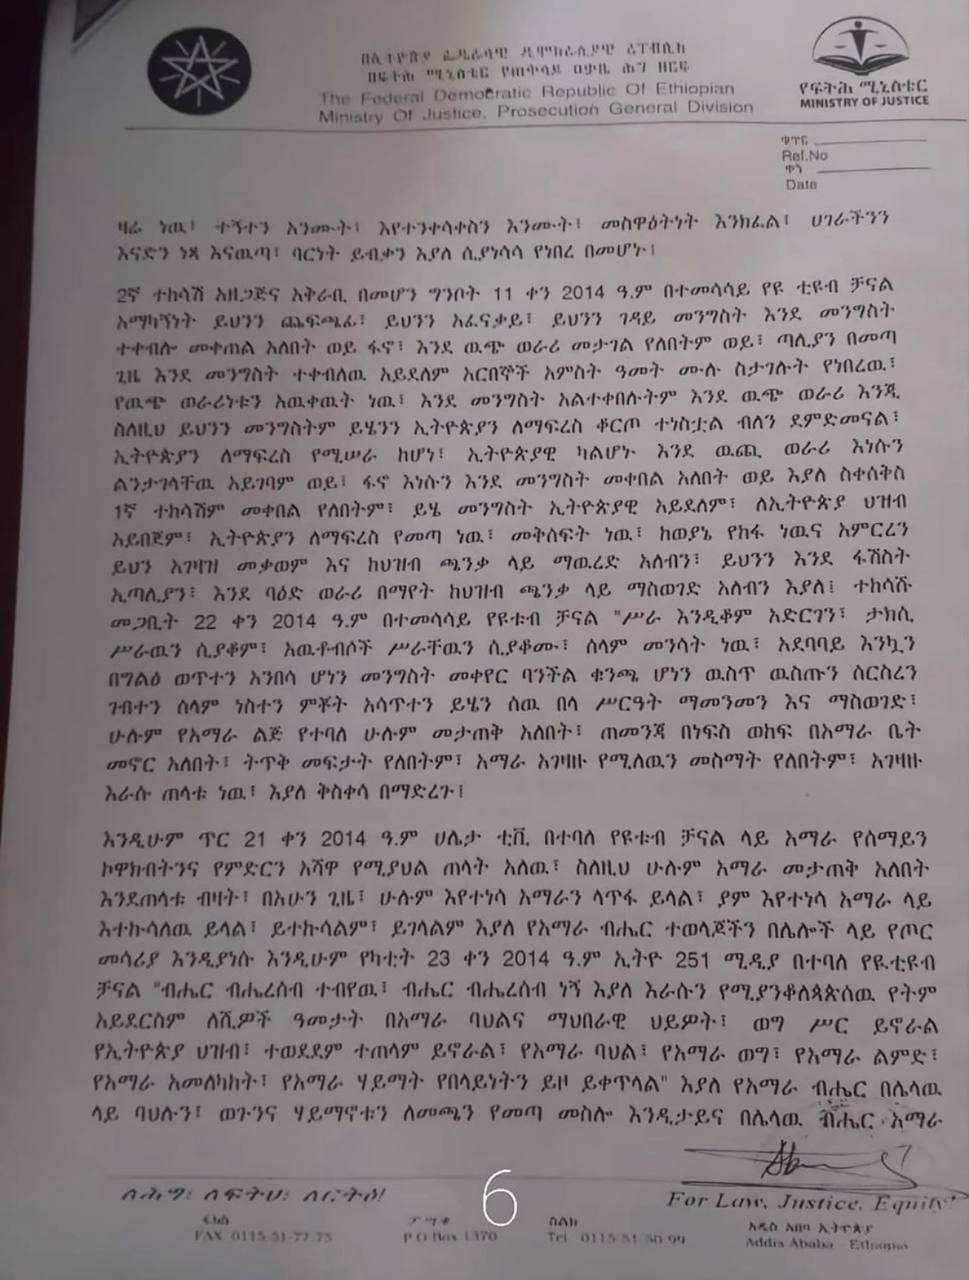 በኢትዮጵያ ፌዴራላዊ ዲሞክራሲያዊ ሪፐብሊክ
በፍትሕ ሚኒስቴር የጠቅላይ ዐቃቤ ሕግ ዘርፍ
The Federal Democratic Republic Of Ethiopian
Ministry Of Justice, Prosecution General Division
የፍትሕ ሚኒስቴር
MINISTRY OF JUSTICE
ቁጥር
Ref.No
ቀን
Date
ዛሬ ነዉ፣ ተኝተን አንሙት፣ እየተንቀሳቀስን እንሙት፣ መስዋዕትነት እንክፈል፣ ሀገራችንን
እናድን ነጻ እናዉጣ፣ ባርነት ይብቃን እያለ ሲያነሳሳ የነበረ በመሆኑ፤
2ኛ ተከሳሽ አዘጋጅና አቅራቢ በመሆን ግንቦት 11 ቀን 2014 ዓ.ም በተመሳሳይ የዩ ቲዩብ ቻናል
አማካኝነት ይህንን ጨፍጫፊ፣ ይህንን አፈናቃይ፣ ይህንን ገዳይ መንግስት እንደ መንግስት
ተቀብሎ መቀጠል አለበት ወይ ፋኖ፣ እንደ ዉጭ ወራሪ መታገል የለበትም ወይ፣ ጣሊያን በመጣ
ጊዜ እንደ መንግስት ተቀብለዉ አይደለም አርበኞች አምስት ዓመት ሙሉ ስታገሉት የነበረዉ፣
የዉጭ ወራሪነቱን አዉቀዉት ነዉ፣ እንደ መንግስት አልተቀበሉትም እንደ ዉጭ ወራሪ እንጂ
ስለዚህ ይህንን መንግስትም ይሄንን ኢትዮጵያን ለማፍረስ ቆርጦ ተነስቷል ብለን ደምድመናል፣
ኢትዮጵያን ለማፍረስ የሚሠራ ከሆነ፣ ኢትዮጵያዊ ካልሆኑ እንደ ዉጪ ወራሪ እነሱን
ልንታገላቸዉ አይገባም ወይ፣ ፋኖ እነሱን እንደ መንግስት መቀበል አለበት ወይ እያለ ስቀሰቅስ
1ኛ ተከሳሽም መቀበል የለበትም፣ ይሄ መንግስት ኢትዮጵያዊ አይደለም፣ ለኢትዮጵያ ህዝብ
አይበጀም፣ ኢትዮጵያን ለማፍረስ የመጣ ነዉ፣ መቅሰፍት ነዉ፣ ከወያኔ የከፋ ነዉና አምርረን
ይህን አገዛዝ መቃወም እና ከህዝብ ጫንቃ ላይ ማዉረድ አለብን፣ ይህንን እንደ ፋሽስት
ኢጣሊያን፣ እንደ ባዕድ ወራሪ በማየት ከህዝብ ጫንቃ ላይ ማስወገድ አለብን እያለ፤ ተከሳሹ
መጋቢት 22 ቀን 2014 ዓ.ም በተመሳሳይ የዩቱብ ቻናል "ሥራ እንዲቆም አድርገን፣ ታክሲ
ሥራዉን ሲያቆም፣ አዉቶብሶች ሥራቸዉን ሲያቆሙ፣ ሰላም መንሳት ነዉ፣ አደባባይ እንኳን
በግልፅ ወጥተን አንበሳ ሆነን መንግስት መቀየር ባንችል ቁንጫ ሆነን ዉስጥ ዉስጡን ሰርስረን
ገብተን ሰላም ነስተን ምቾት አሳጥተን ይሄን ሰዉ በላ ሥርዓት ማመንመን እና ማስወገድ፣
ሁሉም የአማራ ልጅ የተባለ ሁሉም መታጠቅ አለበት፣ ጠመንጃ በነፍስ ወከፍ በአማራ ቤት
መኖር አለበት፣ ትጥቅ መፍታት የለበትም፣ አማራ አገዛዙ የሚለዉን መስማት የለበትም፣ አገዛዙ
እራሱ ጠላቱ ነዉ፣ እያለ ቅስቀሳ በማድረጉ፤
እንዲሁም ጥር 21 ቀን 2014 ዓ.ም ሀሌታ ቲቪ በተባለ የዩቱብ ቻናል ላይ አማራ የሰማይን
ኮዋክብትንና የምድርን አሸዋ የሚያህል ጠላት አለዉ፣ ስለዚህ ሁሉም አማራ መታጠቅ አለበት
እንደጠላቱ ብዛት፣ በአሁን ጊዜ፣ ሁሉም እየተነሳ አማራን ላጥፋ ይላል፣ ያም እየተነሳ አማራ ላይ
እተኩሳለዉ ይላል፣ ይተኩሳልም፣ ይገላልም እያለ የአማራ ብሔር ተወላጆችን በሌሎች ላይ የጦር
መሳሪያ እንዲያነሱ እንዲሁም የካቲት 23 ቀን 2014 ዓ.ም ኢትዮ 251 ሚዲያ በተባለ የዩቲዩብ
ቻናል "ብሔር ብሔረሰብ ተብየዉ፣ ብሔር ብሔረሰብ ነኝ እያለ እራሱን የሚያንቆለጳጵሰዉ የትም
አይደርስም ለሺዎች ዓመታት በአማራ ባህልና ማህበራዊ ህይዎት፣ ወግ ሥር ይኖራል
የኢትዮጵያ ህዝብ፣ ተወደደም ተጠላም ይኖራል፣ የአማራ ባህል፣ የአማራ ወግ፣ የአማራ ልምድ፣
የአማራ አመለካከት፣ የአማራ ሃይማት የበላይነትን ይዞ ይቀጥላል" እያለ የአማራ ብሔር በሌላዉ
ላይ ባህሉን፣ ወጉንና ሃይማኖቱን ለመጫን የመጣ መስሎ እንዲታይና በሌላዉ ብሔር አማራ
ለሕግ፣ ለፍትህ፣ ለርትዕ!
6
For Law, Justice, Equity
ፋክስ
FAX 0115-51-77-75
ፖ ሣ ቁ
P.O.Box 1370
ስልክ
Tel 0115-51-50-99
አዲስ አበባ ኢትዮጵያ
Addis Ababa - Ethiopia